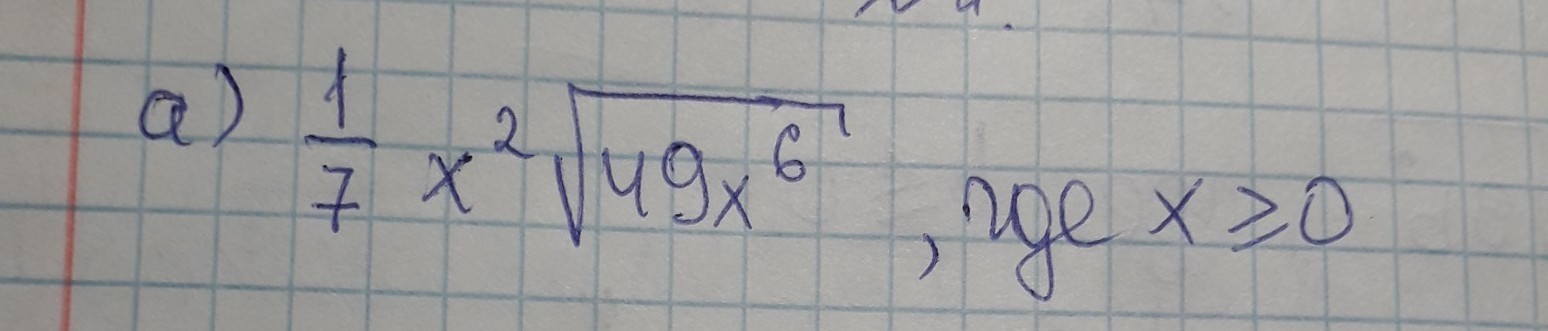 а) 1/7 x²√(49x⁶) , где x ≥ 0